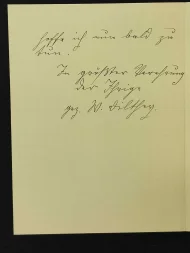 hoffe ich nun bald zu
tun.
In größter Verehrung
der Ihrige
gez. W. Dilthey.